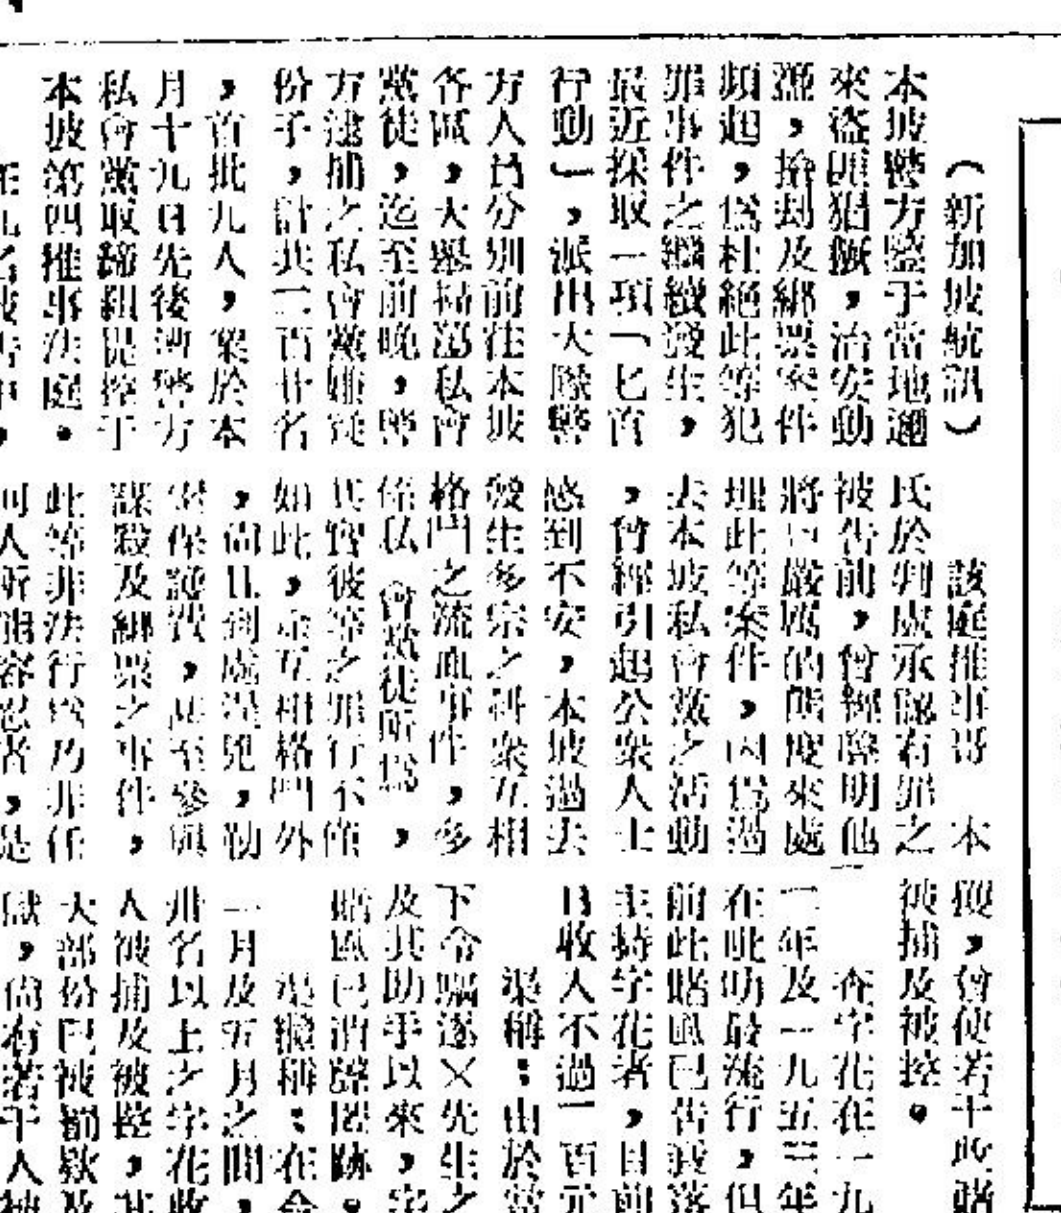 （新加坡航訊）
本坡警方鑒于當地邇
來盜匪猖獗，治安動
盪，搶劫及綁票案件
頻起，爲杜絕此等犯
罪事件之繼續發生，
最近採取一項「匕首
行動」，派出大隊警
方人員分別前往本坡
各區，大舉掃蕩私會
黨徒，迄至前晚，警
方逮捕之私會黨嫌徒
份子，計共二百廿名
，首批九人，業於本
月十九日先後被警方
私會黨取締組提控于
本坡第四推事法庭。
該庭推事哥　本
氏於判處承認有罪之
被告前，曾經聲明他
將以嚴厲的態度來處
理此等案件，因爲過
去本坡私會黨之活動
，曾經引起公衆人士
感到不安，本坡過去
發生多宗之糾衆互相
格鬥之流血事件，多
係私會黨徒所爲，
其實彼等之罪行不僅
如此，除互相格鬥外
，尚且到處逞兇，勒
索保護費，甚至參與
謀殺及綁票之事件，
此等非法行爲乃非任
何人所能容忍者，是
，曾使若干
被捕及被控。
查字花在一九
二年及一九五三年
在吡叻最流行，但
前此賭風已告疲落
主持字花者，目前
日收入不過一百元
渠稱：由於當
下令驅逐×先生之
及其助手以來，字
賭風已消聲匿跡。
渠繼稱：在今
一月及五月之間，
卅名以上之字花收
人被捕及被控，其
大部份已被罰欵及
獄，尚有若干人被